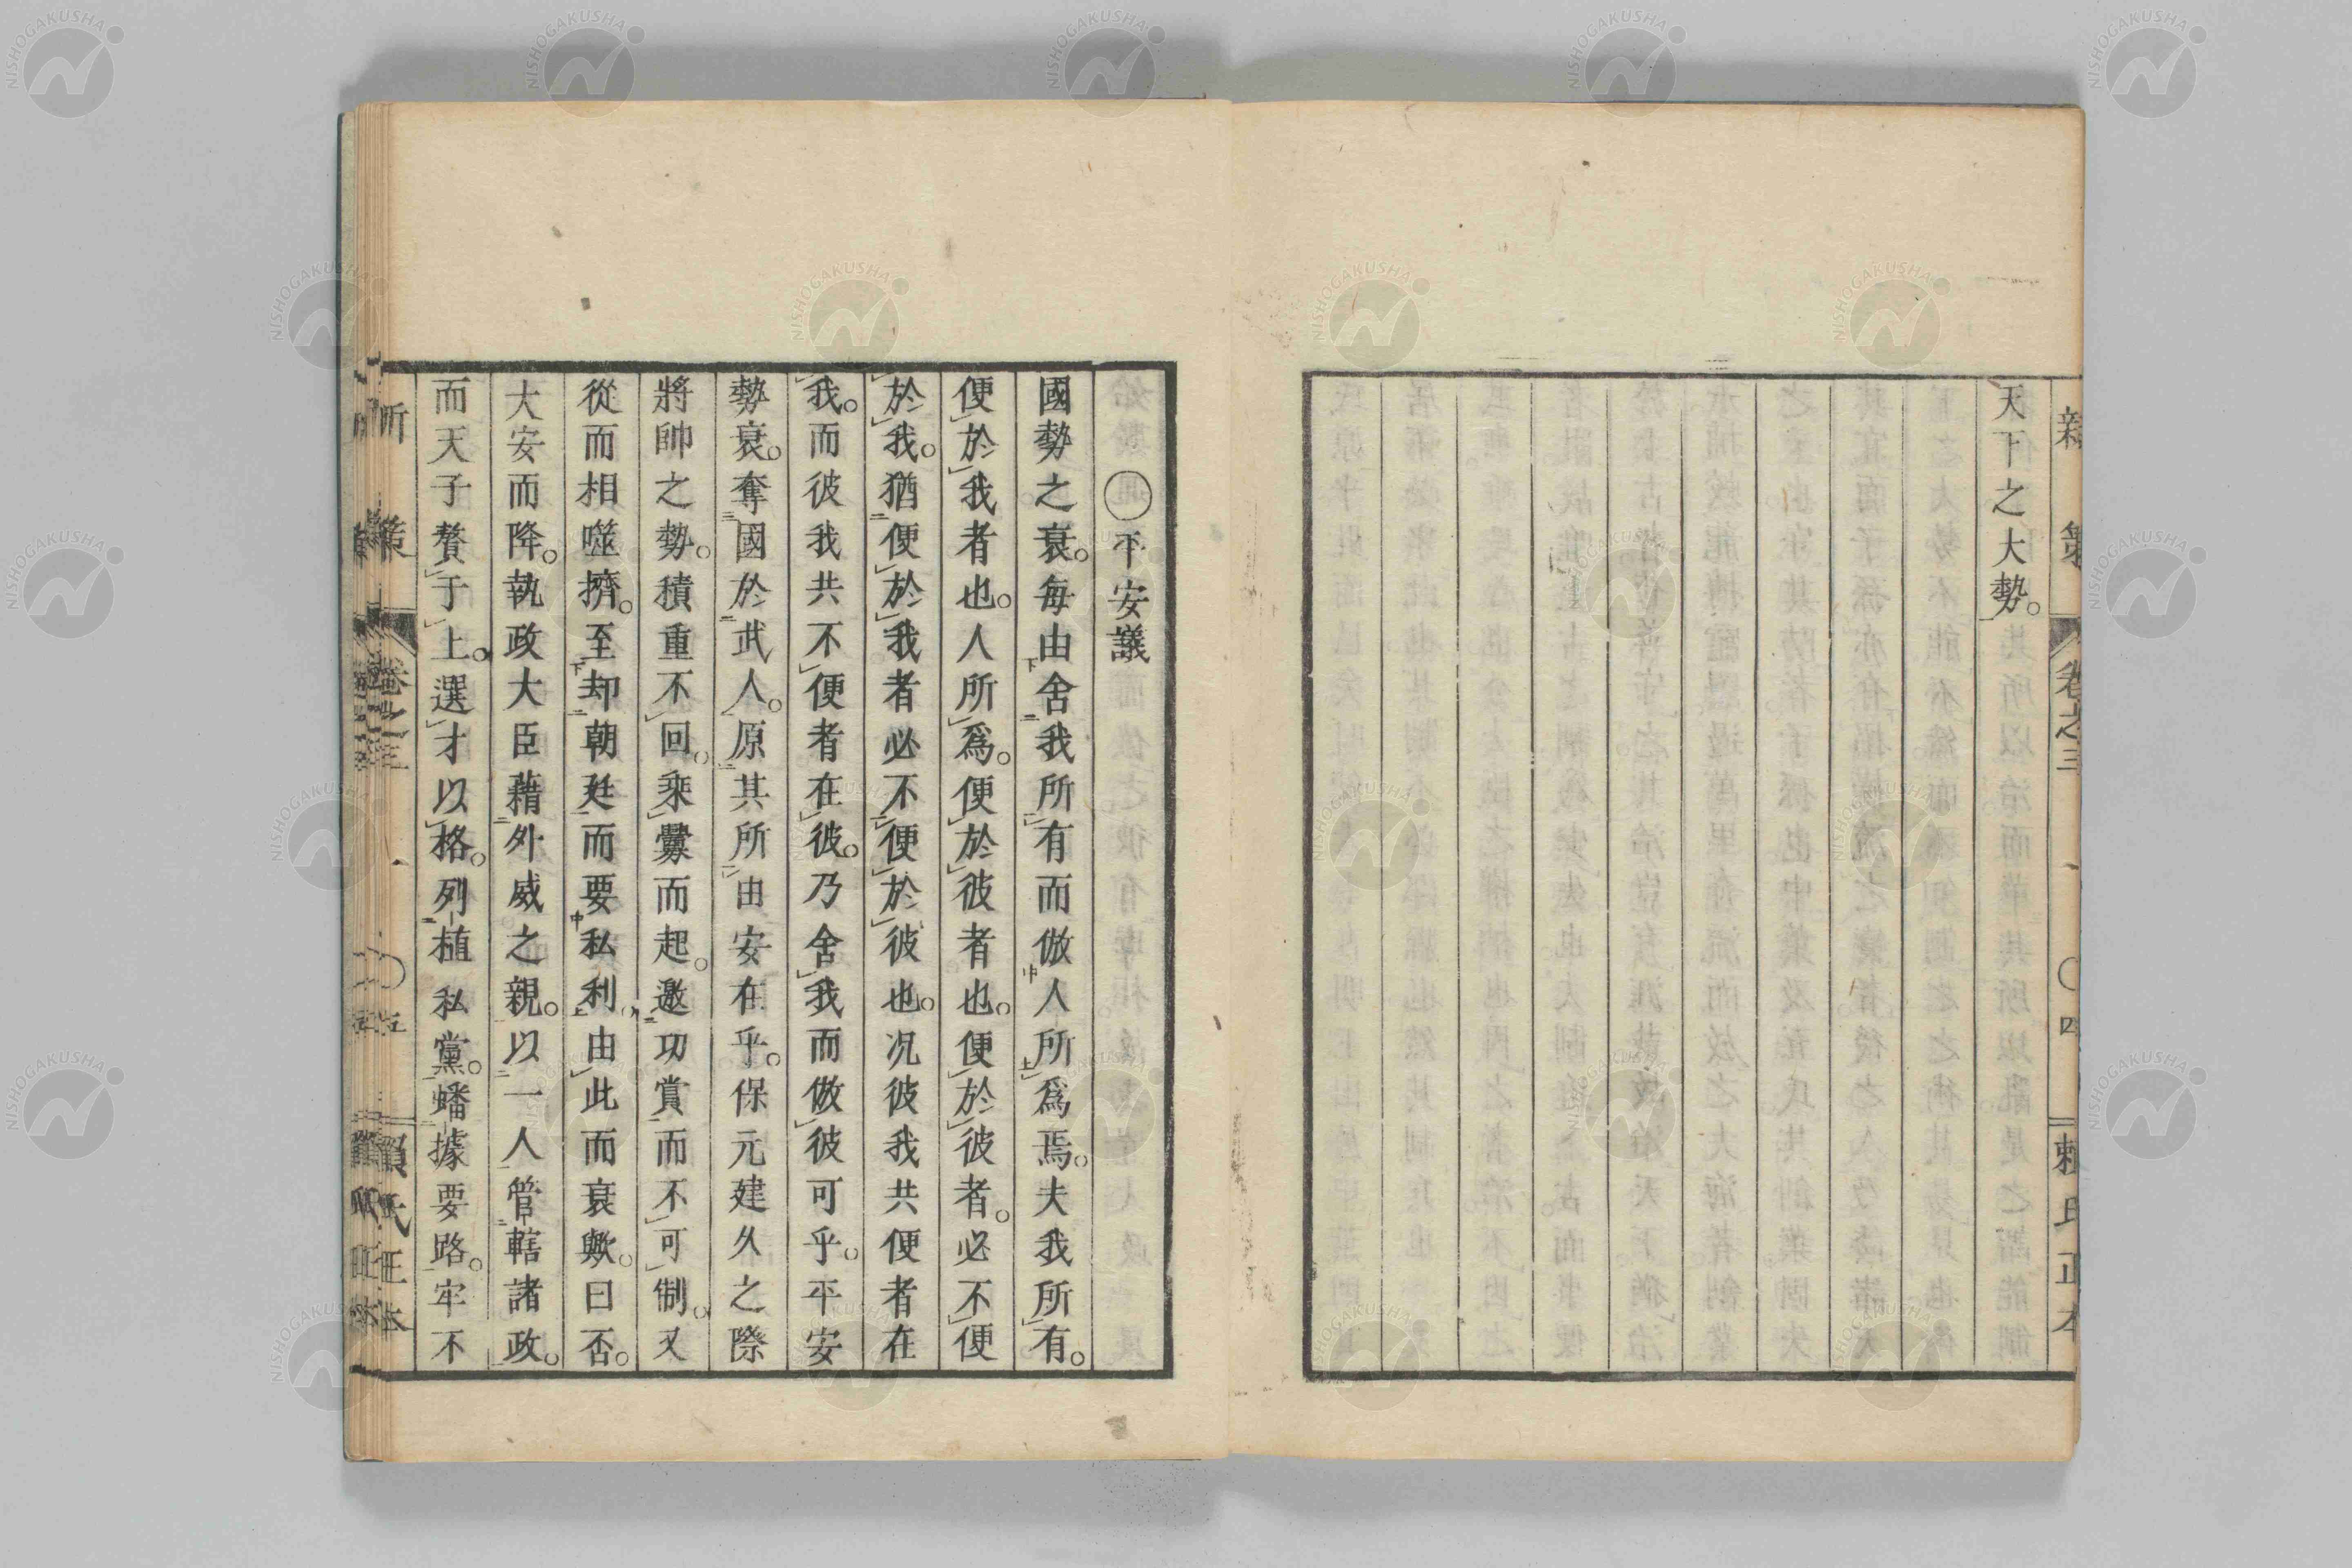 天下之大勢。
新策
卷之三
四
賴氏正本
○平安議
國勢之衰。每由舍我所有而倣人所爲焉。夫我所有。
便於我者也。人所爲。便於彼者也。便於彼者。必不便
於我。猶便於我者必不便於彼也。况彼我共便者在
我。而彼我共不便者在彼。乃舍我而倣彼可乎。平安
勢衰。奪國於武人。原其所由安在乎。保元建久之際
將帥之勢。積重不回。乘釁而起。邀功賞而不可制。又
從而相噬擠。至却朝廷而要私利。由此而衰歟。曰否。
大安而降。執政大臣藉外戚之親。以一人管轄諸政。
而天子贅于上。選才以格。列植私黨。蟠據要路。牢不
NISHOGAKUSHA